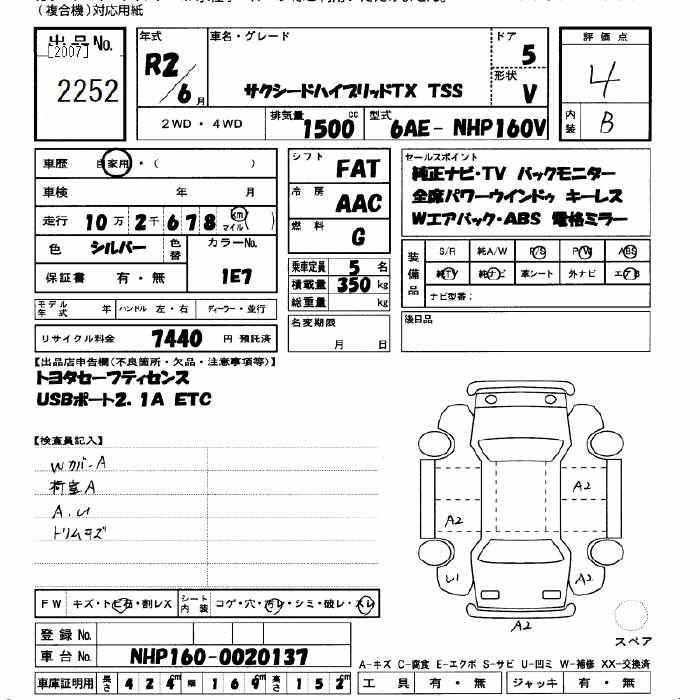 (複合機)対応用紙
出品No.
[2007]
2252
年式
R2/6月
車名・グレード
サクシードハイブリッドTX TSS
ドア
5
形状
V
評価点
4
内装
B
2WD・4WD
排気量 1500 cc
型式 6AE- NHP160V
車歴 自家用・( )
車検 年 月
走行 10万2千678 km マイル( )
色 シルバー 色替
カラーNo.
1E7
保証書 有・無
モデル年式 年 ハンドル 左・右 ディーラー・並行
リサイクル料金 7440 円 預託済
シフト FAT
冷房 AAC
燃料 G
乗車定員 5 名
積載量 350 kg
総重量 kg
名変期限
月 日
セールスポイント
純正ナビ・TV バックモニター
全席パワーウインドゥ キーレス
Wエアバック・ABS 電格ミラー
装備品
S/R 純A/W P/S P/W ABS
純TV 純ナビ 革シート 外ナビ エアB
ナビ型番:
後日品
【出品店申告欄(不良箇所・欠品・注意事項等)】
トヨタセーフティセンス
USBポート2.1A ETC
【検査員記入】
Wカバ-A
荷室A
A.い
トリムキズ
A2
A2
い
A2
A2
スペア
FW キズ・トビ石・割レX
シート内装 コゲ・穴・汚レ・シミ・破レ・スレ
登録No.
車台No. NHP160-0020137
車庫証明用 長さ 424m 幅 169m 高さ 152m
A-キズ C-腐食 E-エクボ S-サビ U-凹ミ W-補修 XX-交換済
工具 有・無 ジャッキ 有・無